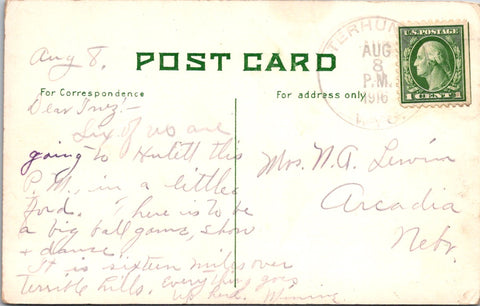 Aug 8,
POST CARD
TERHUN
AUG
8
P.M.
1916
WYO.
U.S. POSTAGE
1 CENT 1
For Correspondence
For address only
Dear Inez!-
Six of us are
going to Hulett this
P.M., in a little
Ford. There is to be
a big ball game, show
+ dance.
It is sixteen miles over
terrible hills. Everything goes
up here. Minnie
Mrs. N.A. Lewin
Arcadia
Nebr.